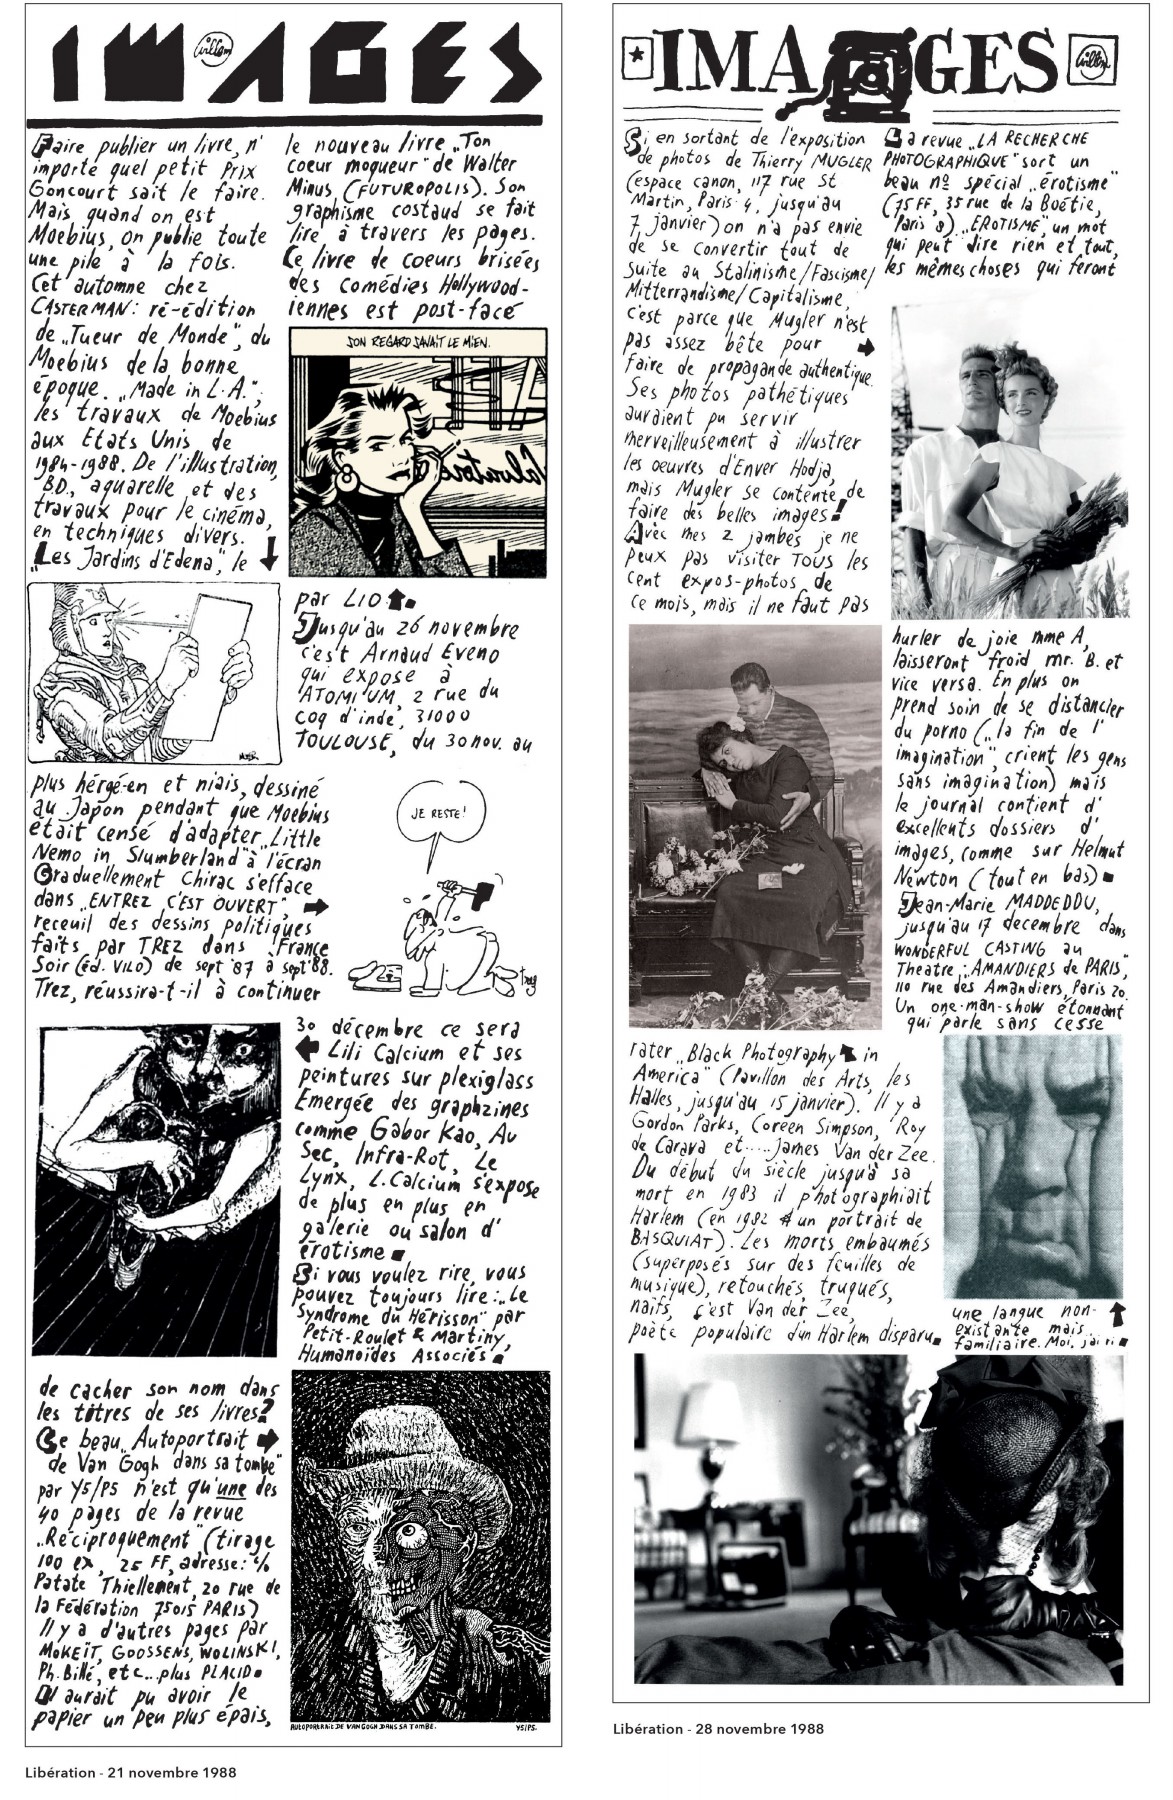 IMAGES
Willem
Faire publier un livre, n'
importe quel petit Prix
Goncourt sait le faire.
Mais quand on est
Moebius, on publie toute
une pile à la fois.
Cet automne chez
CASTERMAN: ré-édition
de „Tueur de Monde", du
Moebius de la bonne
époque. „Made in L.A.":
les travaux de Moebius
aux Etats Unis de
1984-1988. De l'illustration,
B.D., aquarelle et des
travaux pour le cinéma,
en techniques divers.
„Les Jardins d'Edena", le
plus hérgé-en et niais, dessiné
au Japon pendant que Moebius
était censé d'adapter „Little
Nemo in Slumberland" à l'écran
Graduellement Chirac s'efface
dans „ENTREZ C'EST OUVERT",
receuil des dessins politiques
faits par TREZ dans France
Soir (éd. VILO) de sept '87 à sept '88.
Trez, réussira-t-il à continuer
de cacher son nom dans
les titres de ses livres?
Ce beau „Autoportrait
de Van Gogh dans sa tombe"
par Y5/P5 n'est qu'une des
40 pages de la revue
„Réciproquement" (tirage
100 ex, 25 FF, adresse: %
Patate Thiellement, 20 rue de
la Fédération 75015 PARIS)
Il y a d'autres pages par
MOKEÏT, GOOSSENS, WOLINSKI,
Ph. Billé, etc... plus PLACID.
On aurait pu avoir le
papier un peu plus épais,
le nouveau livre „Ton
coeur moqueur" de Walter
Minus (FUTUROPOLIS). Son
graphisme costaud se fait
lire à travers les pages.
Ce livre de coeurs brisées
des comédies Hollywood-
iennes est post-facé
SON REGARD SAVAIT LE MIEN.
par LIO
Jusqu'au 26 novembre
c'est Arnaud Eveno
qui expose à
ATOMIUM, 2 rue du
coq d'inde, 31000
TOULOUSE, du 30 nov. au
JE RESTE!
trez
30 décembre ce sera
Lili Calcium et ses
peintures sur plexiglass
Emergée des graphzines
comme Gabor Kao, Au
Sec, Infra-Rot, Le
Lynx, L. Calcium s'expose
de plus en plus en
galerie ou salon d'
érotisme
Si vous voulez rire, vous
pouvez toujours lire: „Le
Syndrome du Hérisson" par
Petit-Roulet & Martiny,
Humanoïdes Associés.
AUTOPORTRAIT DE VAN GOGH DANS SA TOMBE. Y5/P5.
Libération - 21 novembre 1988
IMAGES
Willem
Si en sortant de l'exposition
de photos de Thierry MUGLER
(espace canon, 117 rue St
Martin, Paris 4, jusqu'au
7 janvier) on n'a pas envie
de se convertir tout de
suite au Stalinisme/Fascisme/
Mitterrandisme/Capitalisme,
c'est parce que Mugler n'est
pas assez bête pour
faire de propagande authentique.
Ses photos pathétiques
auraient pu servir
merveilleusement à illustrer
les oeuvres d'Enver Hodja,
mais Mugler se contente de
faire des belles images!
Avec mes 2 jambes je ne
peux pas visiter TOUS les
cent expos-photos de
ce mois, mais il ne faut pas
rater „Black Photography in
America" (Pavillon des Arts, les
Halles, jusqu'au 15 janvier). Il y a
Gordon Parks, Coreen Simpson, Roy
de Carava et.... James Van der Zee.
Du début du siècle jusqu'à sa
mort en 1983 il photographiait
Harlem (en 1982 un portrait de
BASQUIAT). Les morts embaumés
(superposés sur des feuilles de
musique), retouchés, truqués,
naïfs, c'est Van der Zee,
poète populaire d'un Harlem disparu.
La revue „LA RECHERCHE
PHOTOGRAPHIQUE" sort un
beau nº spécial „érotisme"
(75 FF, 35 rue de la Boétie,
Paris 8) „EROTISME", un mot
qui peut dire rien et tout,
les mêmes choses qui feront
hurler de joie mme A,
laisseront froid mr. B. et
vice versa. En plus on
prend soin de se distancier
du porno („la fin de l'
imagination", crient les gens
sans imagination) mais
le journal contient d'
excellents dossiers d'
images, comme sur Helmut
Newton (tout en bas)
Jean-Marie MADDEDDU,
jusqu'au 17 decembre dans
WONDERFUL CASTING au
Theatre „AMANDIERS de PARIS",
110 rue des Amandiers, Paris 20.
Un one-man-show étonnant
qui parle sans cesse
une langue non-
existante mais
familiaire. Moi, j'ai ri
Libération - 28 novembre 1988